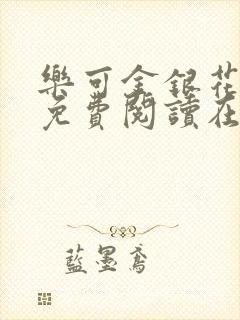 樂可金銀花
免費閱讀在
藍墨鳶